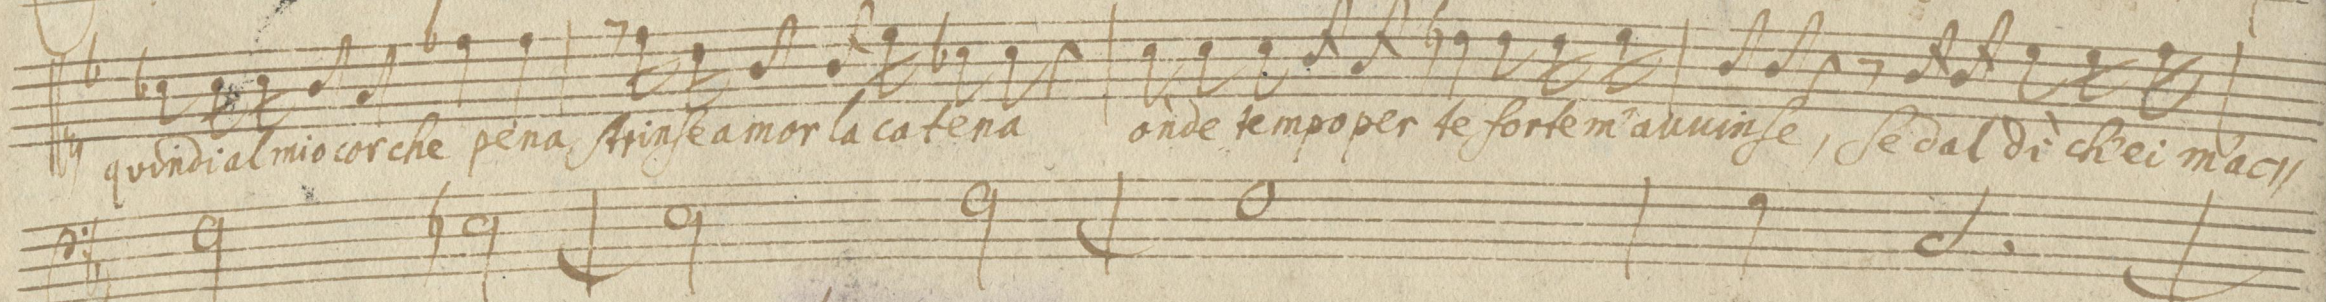 quindi al mio cor che pena strinse amor la catena onde tempo per te forte m'auuinse, se dal dì ch'ei m'ac//